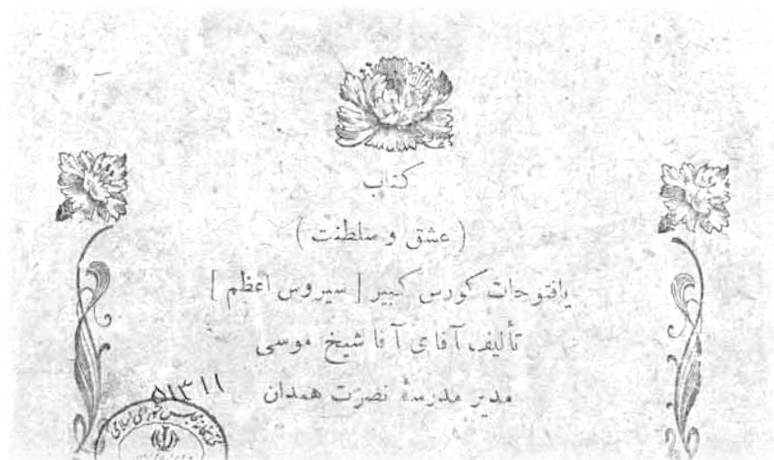 کتاب
( عشق و سلطنت )
یافتوحات کورس کبیر [ سیروس اعظم ]
تألیف آقای آقا شیخ موسی
مدیر مدرسهٔ نصرت همدان
۵۱۳۱۱
کتابخانه مجلس شورای اسلامی